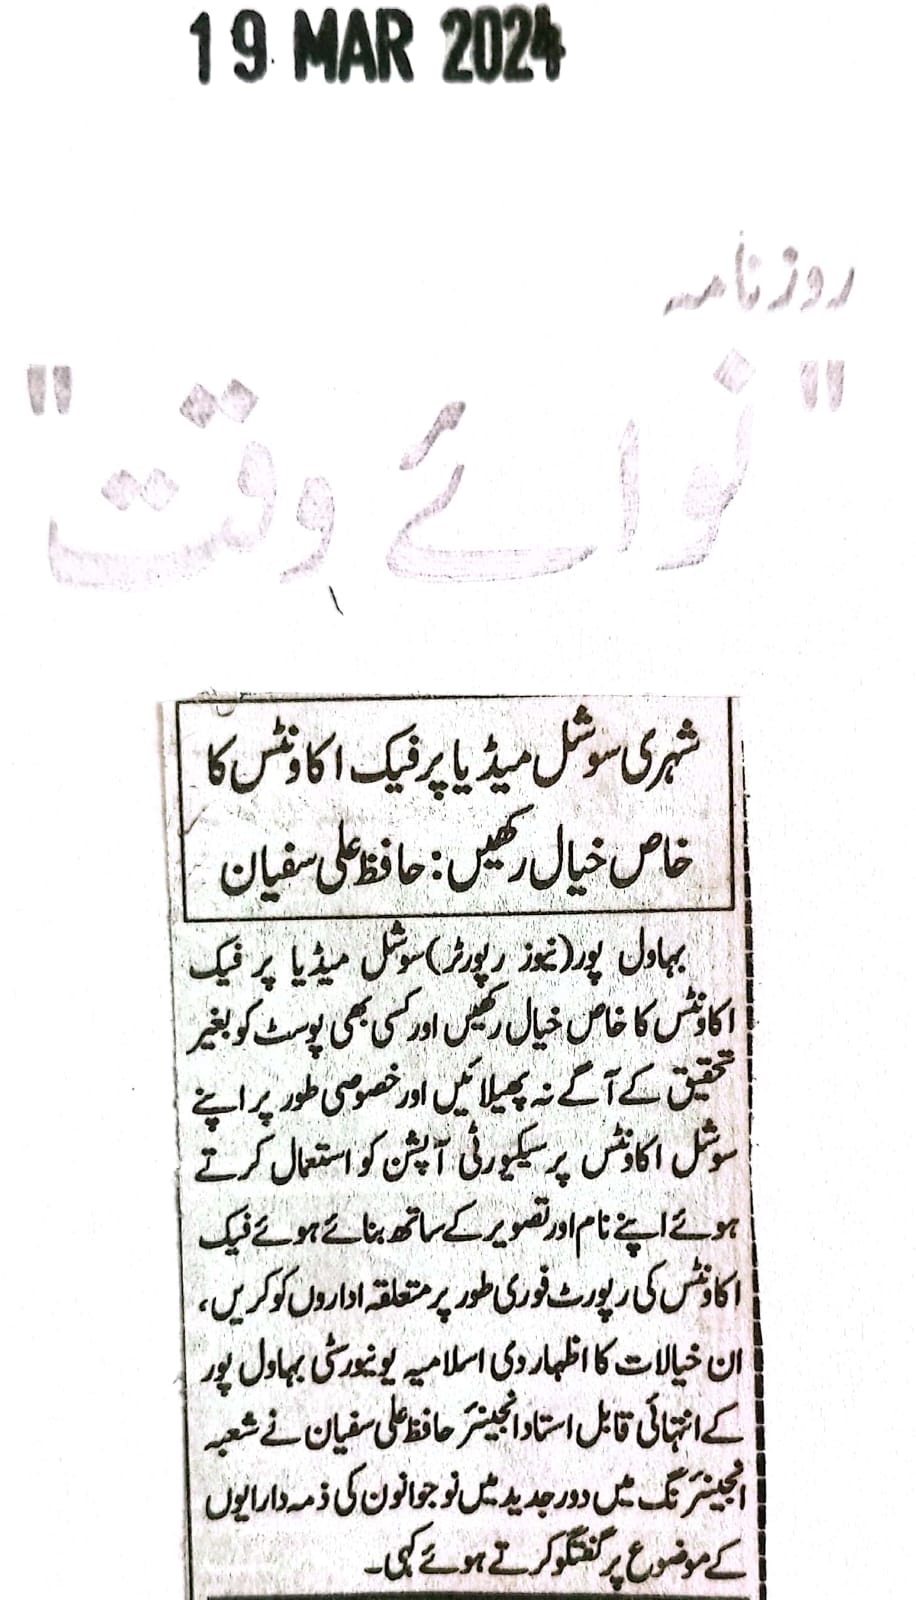 19 MAR 2024
روزنامہ
"نوائے وقت"
شہری سوشل میڈیا پر فیک اکاونٹس کا
خاص خیال رکھیں: حافظ علی سفیان
بہاول پور (نیوز رپورٹر) سوشل میڈیا پر فیک
اکاونٹس کا خاص خیال رکھیں اور کسی بھی پوسٹ کو بغیر
تحقیق کے آگے نہ پھیلائیں اور خصوصی طور پر اپنے
سوشل اکاونٹس پر سیکیورٹی آپشن کو استعمال کرتے
ہوئے اپنے نام اور تصویر کے ساتھ بنائے ہوئے فیک
اکاونٹس کی رپورٹ فوری طور پر متعلقہ اداروں کو کریں،
ان خیالات کا اظہار دی اسلامیہ یونیورسٹی بہاول پور
کے انتہائی قابل استاد انجینئر حافظ علی سفیان نے شعبہ
انجینئرنگ میں دور جدید میں نوجوانون کی ذمہ دارایوں
کے موضوع پر گفتگو کرتے ہوئے کہی۔